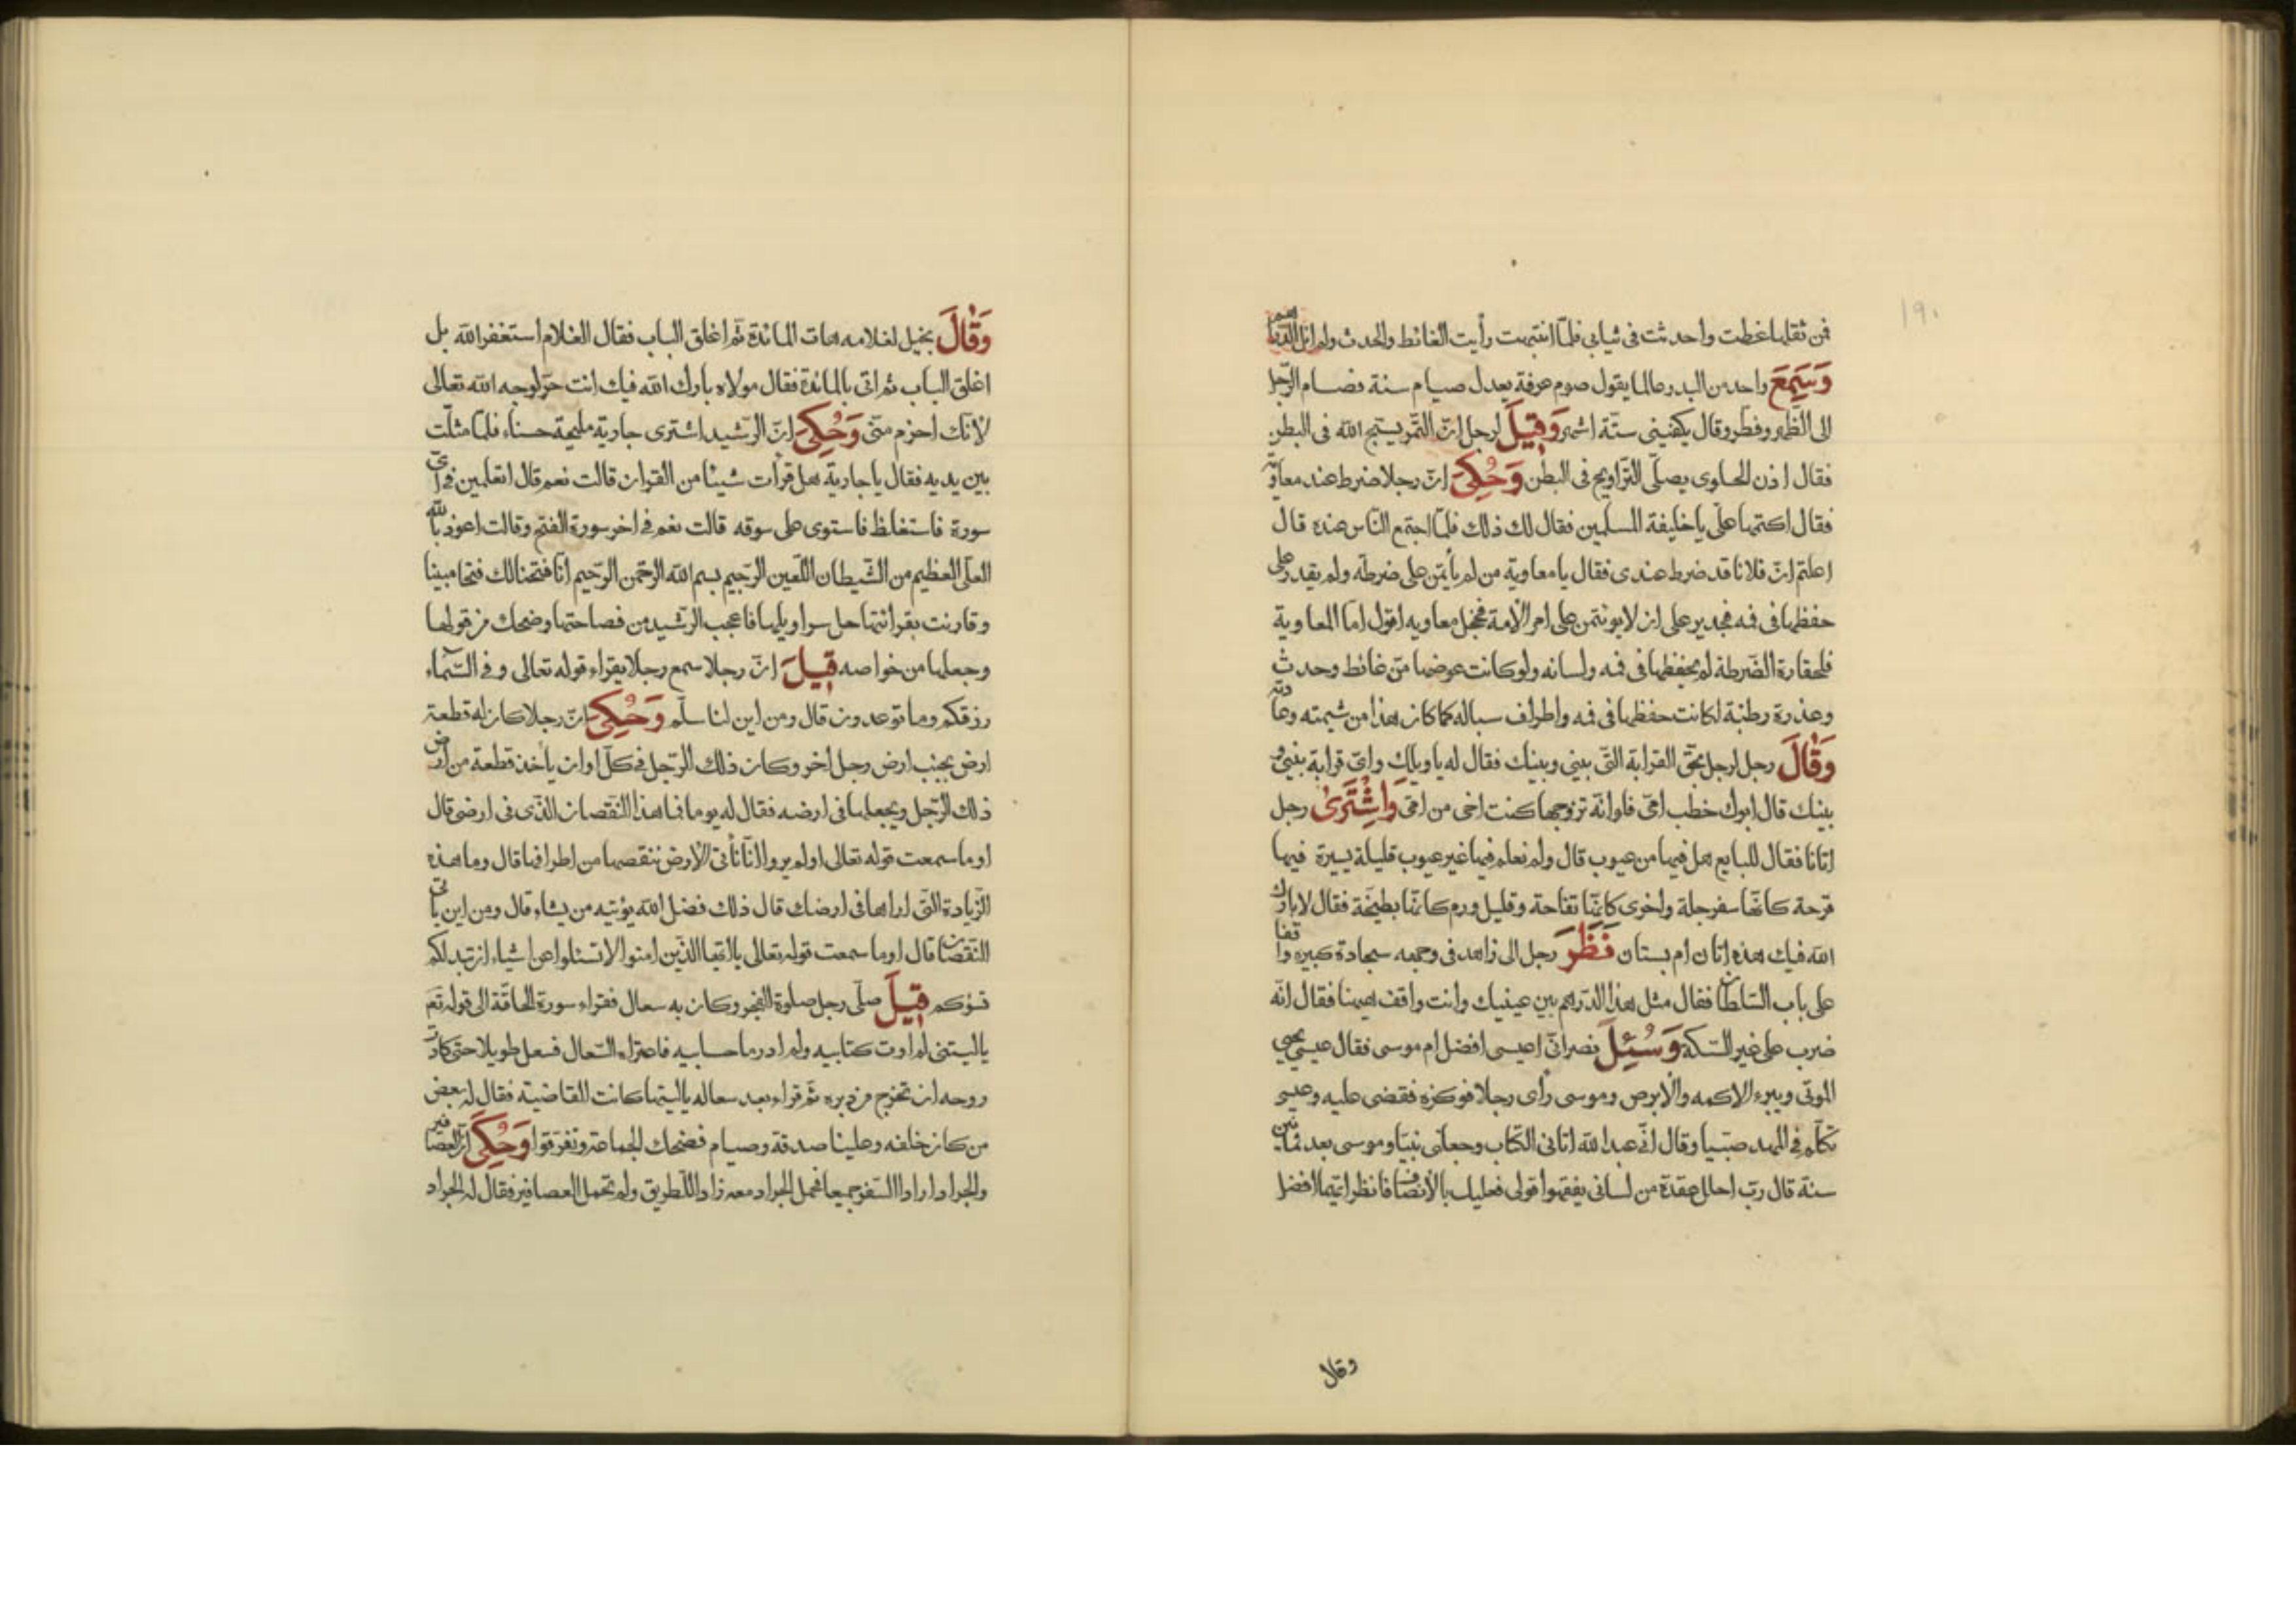 ١٩٠
فمن ثقلها غطت واحدثت فى ثيابى فلمّا انتبهت رأيت الغائط والحدث ولم ار الدراهم
وَسَمِعَ واحد من البدو عالما يقول صوم عرفة يعدل صيام سنة فصام الرّجل
الى الظّهر وفطر وقال يكفينى ستّة اشهر وَقِيلَ لرجل انّ التّمر يسبّح الله فى البطن
فقال اذن الحلوى يصلّى التّراويح فى البطن وَحُكِىَ انّ رجلا ضرط عند معاوية
فقال اكتمها علىّ يا خليفة المسلمين فقال لك ذلك فلمّا اجتمع النّاس عنده قال
اعلتم انّ فلانا قد ضرط عندى فقال يا معاوية من لم يأتمن على ضرطة ولم يقدر على
حفظها فى فمه فجدير على ان لا يوتمن على امر الأمة فخجل معاويه اقول امّا المعاوية
فلحقارة الضّرطة لم يحفظها فى فمه ولسانه ولو كانت عوضها من غائط وحدث
وعذرة رطبة لكانت حفظها فى فمه واطراف سباله كما كان هذا من شيمته وعادته
وَقَالَ رجل لرجل بحقّ القرابة الّتى بينى وبينك فقال له يا ويلك واىّ قرابة بينى و
بينك قال ابوك خطب امّى فلو انّه تزوجها كنت اخى من امّى وَاشْتَرىٰ رجل
اتانا فقال للبايع هل فيها من عيوب قال ولم نعلم فيها غير عيوب قليلة يسيرة فيها
قرحة كانّها سفرجلة واخرى كانّها تفاحة وقليل ورم كانّها بطيخة فقال لا بارك
الله فيك هذه اتان ام بستان نَظَرَ رجل الى زاهد فى وجهه سجادة كبيره واقفا
على باب السّلطان فقال مثل هذا الدّرهم بين عينيك وانت واقف ههنا فقال انّه
ضرب على غير السّكه وَسُئِلَ نصرانىّ اعيسى افضل ام موسى فقال عيسى يحيى
الموتى ويبرء الاكمه والأبرص وموسى رأى رجلا فوكزه فقضى عليه وعيسى
تكلّم فى المهد صبيّا وقال انّى عبد الله اتانى الكتاب وجعلنى نبيّا وموسى بعد ثمانين
سنة قال ربّ احلل عقدة من لسانى يفقهوا قولى فعليك بالأنصاف فانظر ايّهما افضل
وقال
وَقَالَ بخيل لغلامه هات المائدة ثمّ اغلق الباب فقال الغلام استغفر الله بل
اغلق الباب ثم اتى بالمائدة فقال مولاه بارك الله فيك انت حرّ لوجه الله تعالى
لأنّك احزم منّى وَحُكِىَ انّ الرّشيد اشترى جارية مليحة حسناء فلمّا مثلت
بين يديه فقال يا جارية هل قرأت شيئا من القران قالت نعم قال اتعلمين فى اىّ
سورة فاستغلظ فاستوى على سوقه قالت نعم فى اخر سورة الفتح وقالت اعوذ بالله
العلى العظيم من الشّيطان اللّعين الرّجيم بسم الله الرّحمن الرّحيم انّا فتحنا لك فتحا مبينا
وقارنت بقرائتها حل سراويلها فاعجب الرّشيد من فصاحتها وضحك من قولها
وجعلها من خواصه قِيلَ انّ رجلا سمع رجلا يقراء قوله تعالى وفى السّماء
رزقكم وما توعدون قال ومن اين لنا سلّم وَحُكِىَ انّ رجلا كان له قطعة
ارض بجنب ارض رجل اخر وكان ذلك الرّجل فى كلّ اوان يأخذ قطعة من ارض
ذلك الرّجل ويجعلها فى ارضه فقال له يوما فما هذا النّقصان الّذى فى ارضى قال
اوما سمعت قوله تعالى اولم يروا انّا نأتى الأرض ننقصها من اطرافها قال وما هذه
الزّيادة الّتى اراها فى ارضك قال ذلك فضل الله يؤتيه من يشاء قال ومن اين يأتى
النّقصان قال اوما سمعت قوله تعالى يا ايّها الّذين امنوا لا تسئلوا عن اشياء ان تبد لكم
تسؤكم قِيلَ صلّى رجل صلوة الفجر وكان به سعال فقراء سورة الحاقّة الى قوله تعم
يا ليتنى لم اوت كتابيه ولم ادر ما حسابيه فاعتراه السّعال فسعل طويلا حتى كادت
روحه ان تخرج من دبره ثمّ قراء بعد سعاله يا ليتها كانت القاضية فقال له بعض
من كان خلفه وعلينا صدقة وصيام فضحك الجماعة وتفرّقوا وَحُكِىَ انّ العصافير
والجراد ارادا السّفر جميعا فحمل الجراد معه زاد اللطريق ولم تحمل العصافير فقال له الجراد